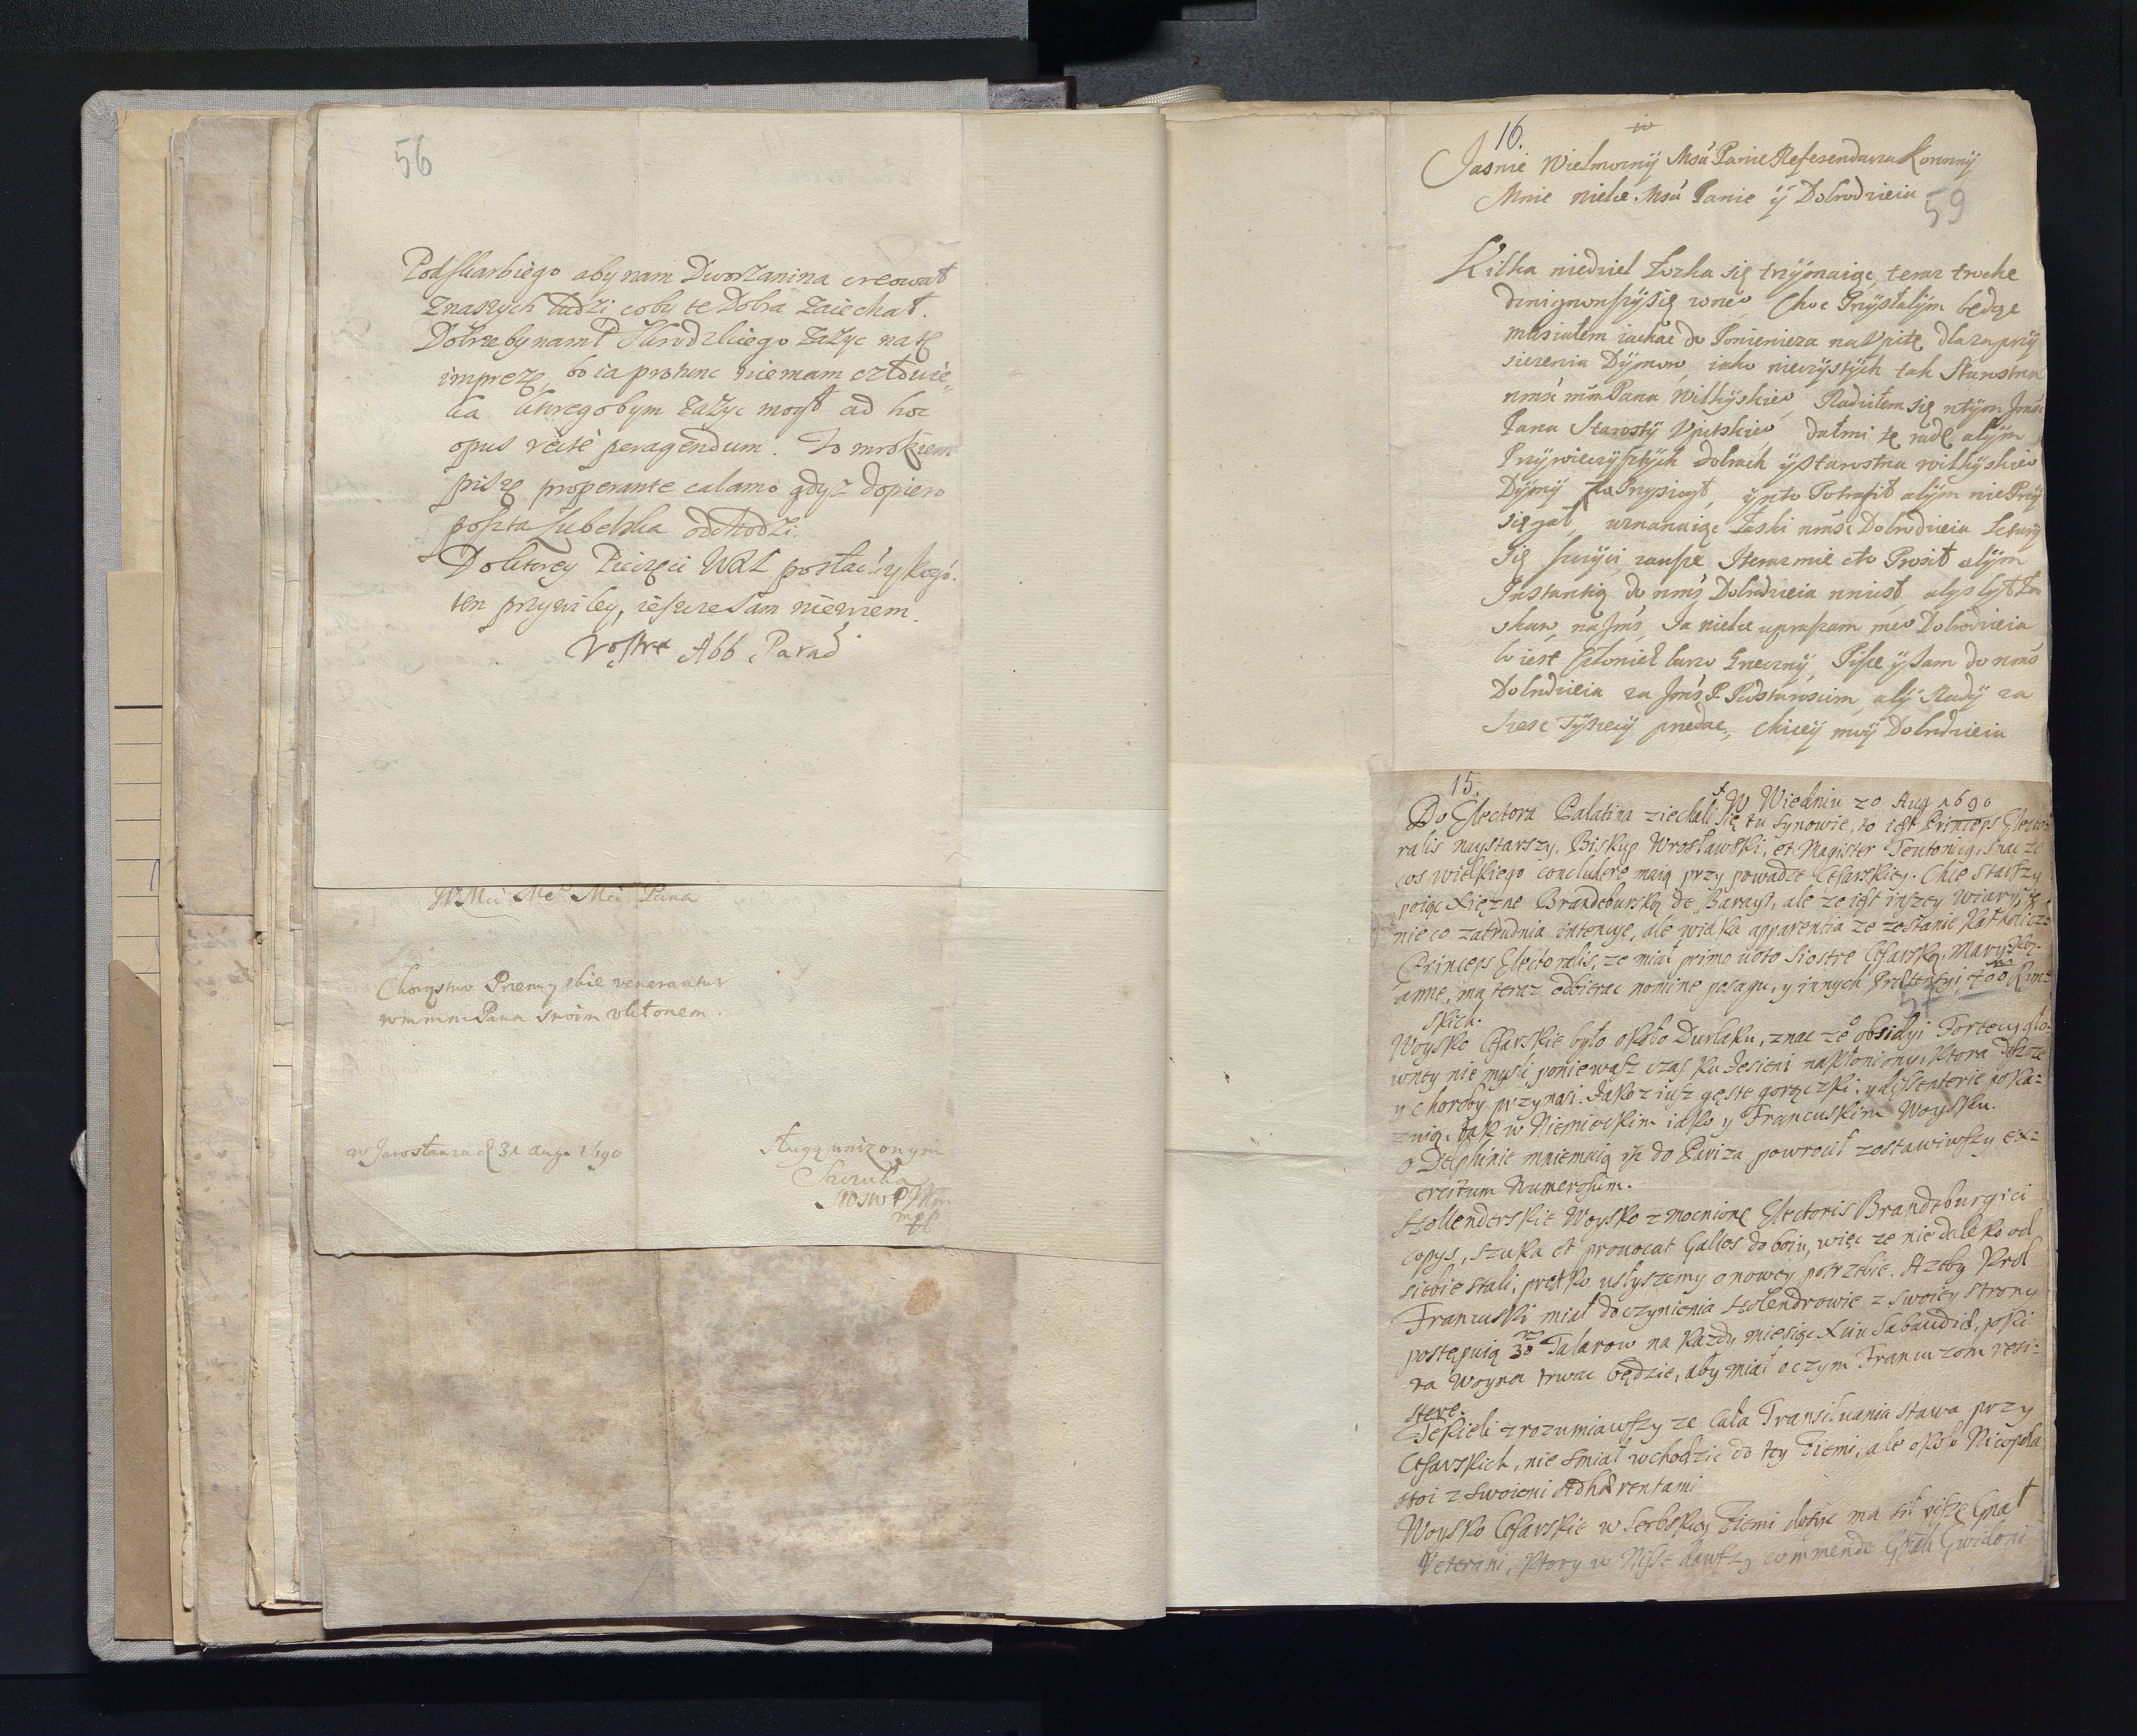 56
Podskarbiego aby nam Dworzanina creował
z naszych ludzi coby te Dobra zaiechał.
Dobrze by nam P Skrodzkiego zażyc na tę
imprezę, bo ia pro tunc nie mam człowie„
ka ktorego bym zażyc mogł ad hoc
opus recte peragendum. To mrokiem
piszę properante calamo gdysz dopiero
poszta Lubelska odchodzi.
Do ktorey Pieczęci WXL posłac y kogo
ten przywiley, ieszcze sam niewiem.
Vostre Abb Parad
Pana
Chorąstwo Przemyskie venerantur
wmmm Pana swoim ukłonem.
w Jarosławiu d 31 Aug 1690
sługą unizonym
Szczuka
16.
Jasnie Wielmozny Msci Panie Referendarzu Koronny
Mnie wielce Msci Panie y Dobrodzieiu
59
Kilka niedziel łozka się trzymaiąc, teraz troche
Choc Przysłabym będąc
musiałem iachac do Poniewieza na Upitę dla zaprzy
siezenia Dymow, iako wieczystych tak Starostwa
Pana Wilkyskieo Radziłem się w tym Jmsci
Pana Starosty Upitskieo, dał mi tę radę abym
Przy wieczystych dobrach y Starostwa Wilkyskieo
Dymy zaPrzysiągł, y po to Potrafił abym niePrzy
sięgał, uznawaiąc łaski wmsci Dobrodzieia
się
Instantią do wmsc Dobrodzieia wniosł, abys był ła
skaw na Jmsci, Ja wielce upraszam meo Dobrodzieia
bo iest człowiek barzo grzeczny, Pisze y sam do wmsc
Dobrodzieia za Jmsc P. Podstaroscim, aby Rudy za
szesc Tysięcy przedac, chciey moy Dobrodzieiu
15.
W Wiedniu 20 Aug 1690
Do Electora Palatina ziechali się tu synowie, to iest Princeps Electo-
ralis naystarszy. Biskup Wrocławski, et Magister Teutonicg, znac ze
cos wielkiego concludere maią przy powadze Cesarskiey. Chce starszy
poiąc Xięzne Brandeburską de Barayt, ale ze iest inszey wiary, to
nieco zatrudnia intencye, ale wielka apparentia ze zostanie Katholicz:
Princeps Electoralis, ze miał primo voto siostre Cesarską, Maryą
annę, ma teraz odbierac nomine posagu, y innych Prætensyi, 400 Ryn:
skich.
Woysko Cesarskie było około Durlaku, znac ze o obsidyi Fortecy gło:
wney nie mysli, poniewasz czas ku Jesieni nakłoniony, ktora deszcze
y choroby przynosi. Jakoz iusz gęste gorączki, y dissenterie poka:
zuią, tak w Niemieckim iako y Francuskim Woysku.
O Delphinie mniemaią isz do Pariza powrocił zostawiwszy ex:
ercitum Numerosum.
Hollenderskie Woysko zmocnione Electoris Brandeburgici
copys, szuka et prouocat Gallos do boiu, więc ze niedaleko od
siebie stali, prętko usłyszemy o nowey potrzebie. A zeby Krol
Francuski miał do czynienia Holendrowie z swoiey strony
postępuią 30 m Talarow na kazdy miesiąc Xciu Sabaudiæ, poki
ta woyna trwac będzie, aby miał o czym Francuzom resi:
stere.
Tekieli zrozumiawszy ze cała Transiluania stawa przy
Cesarskich, nie smiał wchodzic do tey Ziemi, ale około Nicopola
stoi z swoiemi Adhærentami
Woysko Cesarskie w Serbskiey Ziemi
Veterani, ktory w Nisse dawszy commende